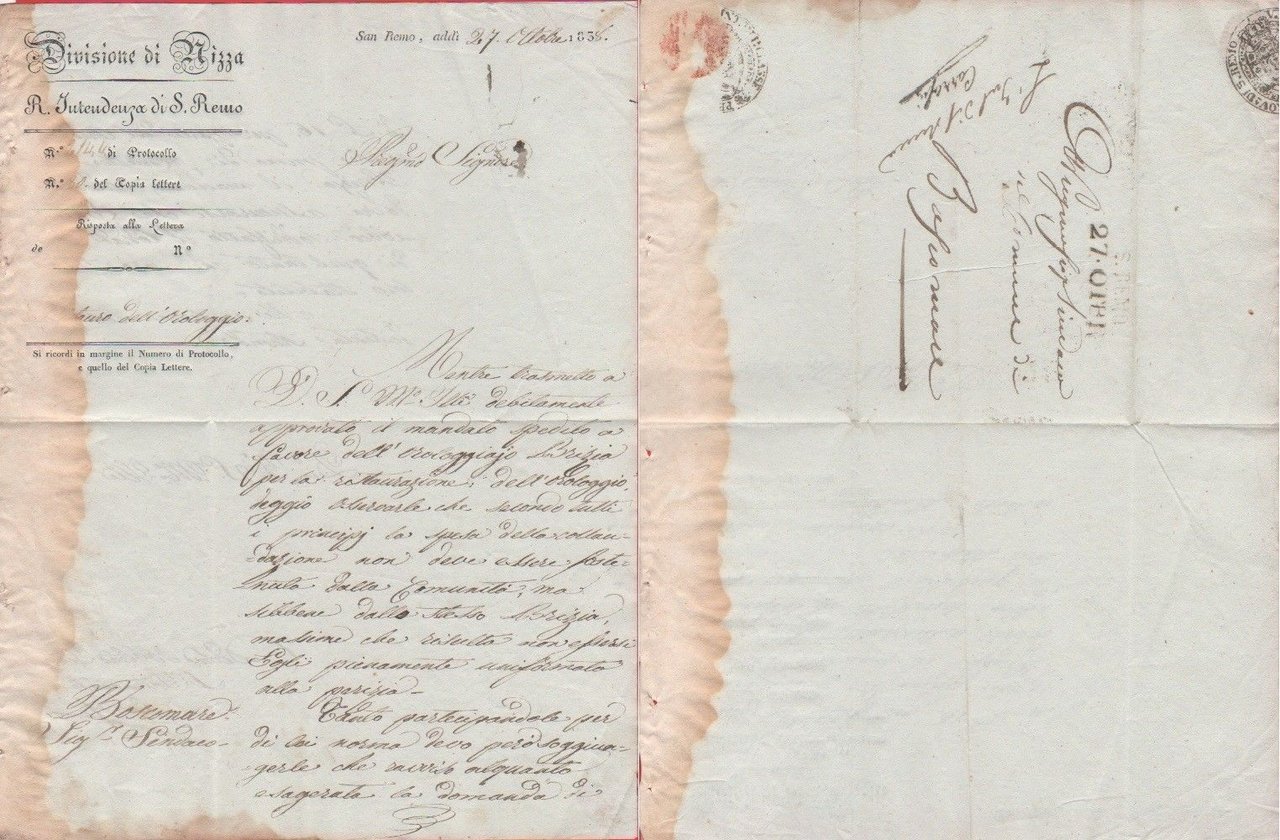 Divisione di Nizza
R. Intendenza di S. Remo
N.º 144 di Protocollo
N.º del Copia Lettere
Risposta alla Lettera
de N.º
dell'Orologgio.
Si ricordi in margine il Numero di Protocollo,
e quello del Copia Lettere.
San Remo, addì 27. Ottobre 1838.
Signore
Mentre trasmetto a
V. S. M.to Ill.e debitamente
approvato il mandato spedito a
favore dell'Orologgiajo Brizia
per la rattaurazione dell'Orologgio,
deggio osservarle che secondo tutti
i principj la spesa della collau-
-dazione non deve essere soste-
nuta dalla Comunità, ma
sibbene dallo stesso Brizia,
massime che risulta non essersi
Egli pienamente uniformato
alla perizia_
Tanto partecipandole per
di lei norma devo però soggiun-
-gerle che ravviso alquanto
esagerata la domanda di
Boscomare
Sig.r Sindaco
Sindaco
del Comune di
Boscomare
S. REMO
27. OTT.E